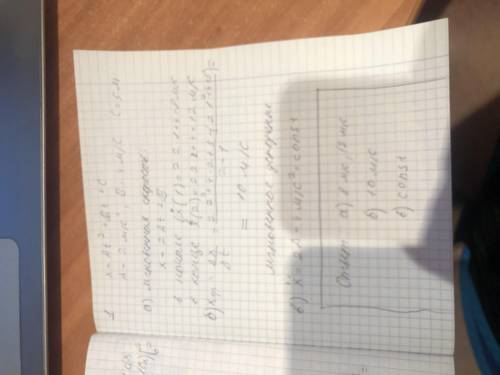 1 x = At² + Bt + C
A = 2 м/с² B = 4 м/с C = 5 м
а) мгновенная скорость
ẋ = 2At + B
в начале ẋ(1) = 2·2·1+4 = 8 м/с
в конце ẋ(2) = 2·2·2+4 = 12 м/с
= 10 м/с
мгновенное ускорение
в) ẍ = 2A = 4 м/с² = const
Ответ: а) 8 м/с, 12 м/с
б) 10 м/с
в) const